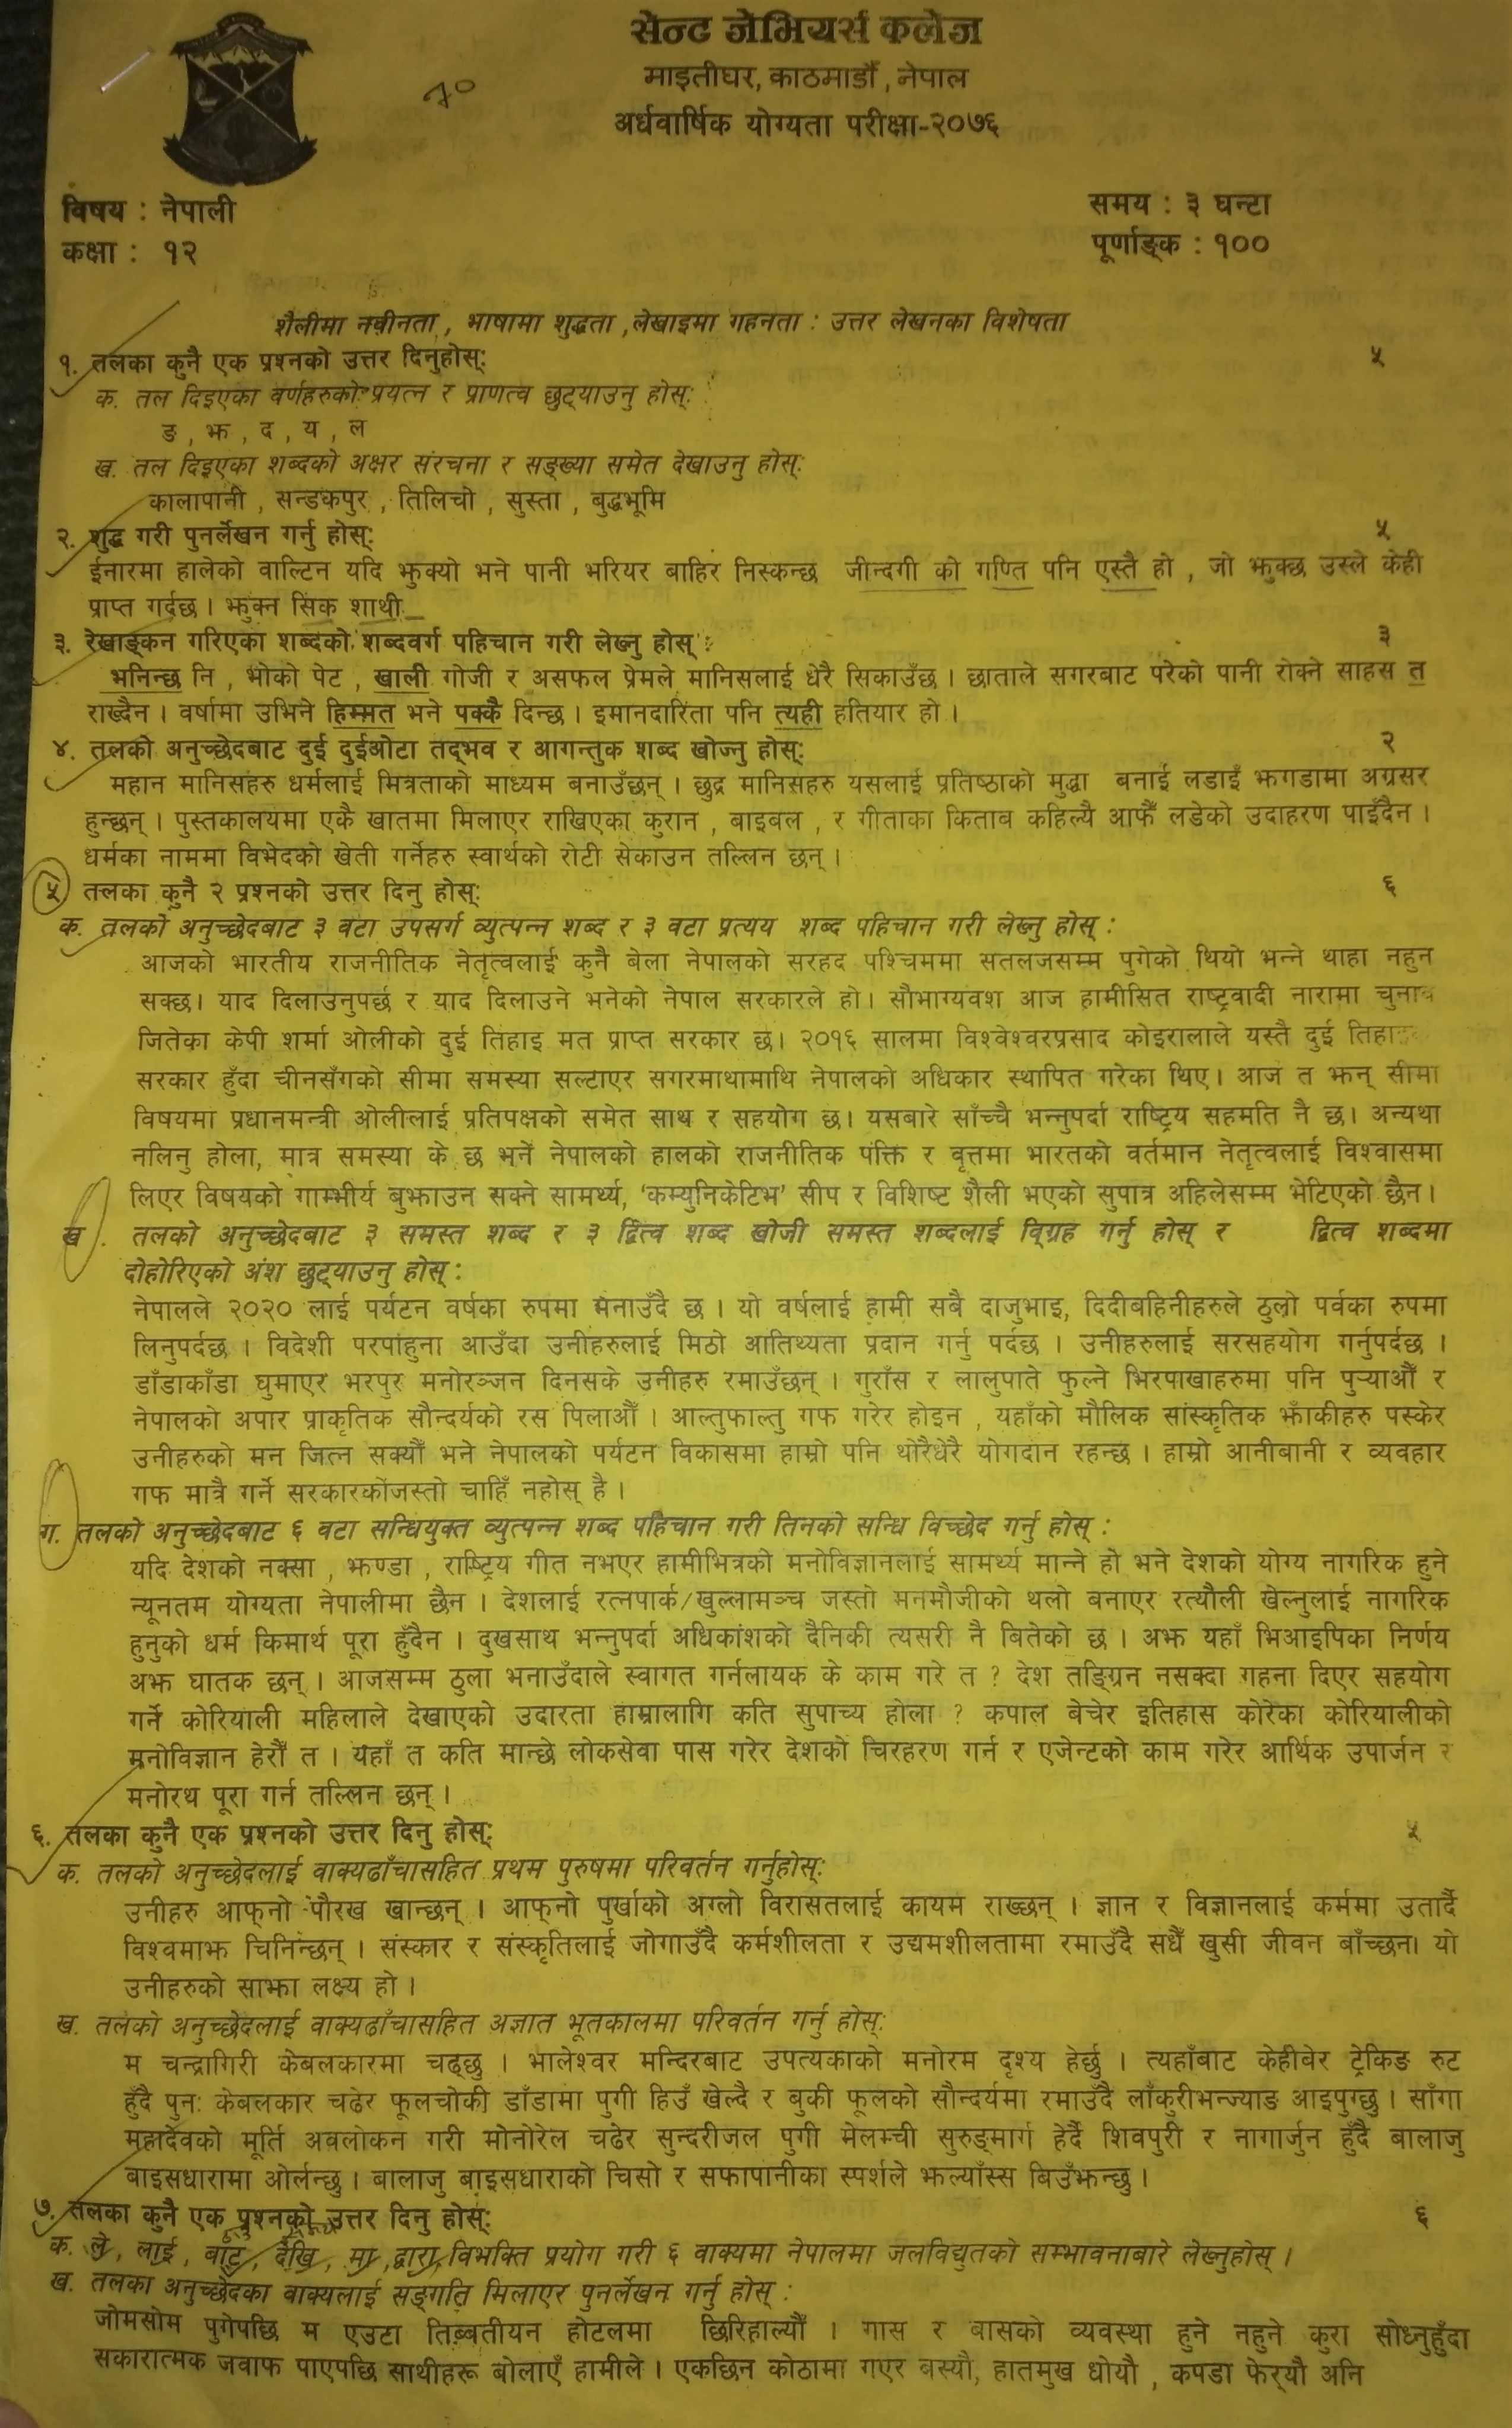 सेन्ट जेभियर्स कलेज
माइतीघर, काठमाडौँ, नेपाल
१०
अर्धवार्षिक योग्यता परीक्षा-२०७६
विषय : नेपाली
समय : ३ घन्टा
कक्षा : १२
पूर्णाङ्क : १००
शैलीमा नवीनता, भाषामा शुद्धता ,लेखाइमा गहनता : उत्तर लेखनका विशेषता
१. तलका कुनै एक प्रश्नको उत्तर दिनुहोस्: ५
क. तल दिइएका वर्णहरुको प्रयत्न र प्राणत्व छुट्याउनु होस्:
ङ , झ , द , य , ल
ख. तल दिइएका शब्दको अक्षर संरचना र सङ्ख्या समेत देखाउनु होस्:
कालापानी , सन्डकपुर , तिलिचो , सुस्ता , बुद्धभूमि
२. शुद्ध गरी पुनर्लेखन गर्नु होस्: ५
ईनारमा हालेको वाल्टिन यदि झुक्यो भने पानी भरियर बाहिर निस्कन्छ जीन्दगी को गण्ति पनि एस्तै हो , जो झुक्छ उस्ले केही
प्राप्त गर्दछ । झुक्न सिक शाथी
३. रेखाङ्कन गरिएका शब्दको शब्दवर्ग पहिचान गरी लेख्नु होस् : ३
भनिन्छ नि , भोको पेट , खाली गोजी र असफल प्रेमले मानिसलाई धेरै सिकाउँछ । छाताले सगरबाट परेको पानी रोक्ने साहस त
राख्दैन । वर्षामा उभिने हिम्मत भने पक्कै दिन्छ । इमानदारिता पनि त्यही हतियार हो ।
४. तलको अनुच्छेदबाट दुई दुईओटा तद्भव र आगन्तुक शब्द खोज्नु होस्: २
महान मानिसहरु धर्मलाई मित्रताको माध्यम बनाउँछन् । छुद्र मानिसहरु यसलाई प्रतिष्ठाको मुद्धा बनाई लडाइँ झगडामा अग्रसर
हुन्छन् । पुस्तकालयमा एकै खातमा मिलाएर राखिएका कुरान , बाइबल , र गीताका किताब कहिल्यै आफैँ लडेको उदाहरण पाइँदैन ।
धर्मका नाममा विभेदको खेती गर्नेहरु स्वार्थको रोटी सेकाउन तल्लिन छन् ।
५ तलका कुनै २ प्रश्नको उत्तर दिनु होस्: ६
क. तलको अनुच्छेदबाट ३ वटा उपसर्ग व्युत्पन्न शब्द र ३ वटा प्रत्यय शब्द पहिचान गरी लेख्नु होस् :
आजको भारतीय राजनीतिक नेतृत्वलाई कुनै बेला नेपालको सरहद पश्चिममा सतलजसम्म पुगेको थियो भन्ने थाहा नहुन
सक्छ। याद दिलाउनुपर्छ र याद दिलाउने भनेको नेपाल सरकारले हो। सौभाग्यवश आज हामीसित राष्ट्रवादी नारामा चुनाव
जितेका केपी शर्मा ओलीको दुई तिहाइ मत प्राप्त सरकार छ। २०१६ सालमा विश्वेश्वरप्रसाद कोइरालाले यस्तै दुई
सरकार हुँदा चीनसँगको सीमा समस्या सल्टाएर सगरमाथामाथि नेपालको अधिकार स्थापित गरेका थिए। आज त झन् सीमा
विषयमा प्रधानमन्त्री ओलीलाई प्रतिपक्षको समेत साथ र सहयोग छ। यसबारे साँच्चै भन्नुपर्दा राष्ट्रिय सहमति नै छ। अन्यथा
नलिनु होला, मात्र समस्या के छ भने नेपालको हालको राजनीतिक पंक्ति र वृत्तमा भारतको वर्तमान नेतृत्वलाई विश्वासमा
लिएर विषयको गाम्भीर्य बुझाउन सक्ने सामर्थ्य, ‘कम्युनिकेटिभ’ सीप र विशिष्ट शैली भएको सुपात्र अहिलेसम्म भेटिएको छैन।
ख . तलको अनुच्छेदबाट ३ समस्त शब्द र ३ द्वित्व शब्द खोजी समस्त शब्दलाई विग्रह गर्नु होस् र द्वित्व शब्दमा
दोहोरिएको अंश छुट्याउनु होस् :
नेपालले २०२० लाई पर्यटन वर्षका रुपमा मनाउँदै छ । यो वर्षलाई हामी सबै दाजुभाइ, दिदीबहिनीहरुले ठुलो पर्वका रुपमा
लिनुपर्दछ । विदेशी परपाहुना आउँदा उनीहरुलाई मिठो आतिथ्यता प्रदान गर्नु पर्दछ । उनीहरुलाई सरसहयोग गर्नुपर्दछ ।
डाँडाकाँडा घुमाएर भरपुर मनोरञ्जन दिनसके उनीहरु रमाउँछन् । गुराँस र लालुपाते फुल्ने भिरपाखाहरुमा पनि पुऱ्याऔँ र
नेपालको अपार प्राकृतिक सौन्दर्यको रस पिलाऔँ । आल्तुफाल्तु गफ गरेर होइन , यहाँको मौलिक सांस्कृतिक झाँकीहरु पस्केर
उनीहरुको मन जित्न सक्यौँ भने नेपालको पर्यटन विकासमा हाम्रो पनि थोरैधेरै योगदान रहन्छ । हाम्रो आनीबानी र व्यवहार
गफ मात्रै गर्ने सरकारकोजस्तो चाहिँ नहोस् है ।
ग. तलको अनुच्छेदबाट ६ वटा सन्धियुक्त व्युत्पन्न शब्द पहिचान गरी तिनको सन्धि विच्छेद गर्नु होस् :
यदि देशको नक्सा , झण्डा , राष्ट्रिय गीत नभएर हामीभित्रको मनोविज्ञानलाई सामर्थ्य मान्ने हो भने देशको योग्य नागरिक हुने
न्यूनतम योग्यता नेपालीमा छैन । देशलाई रत्नपार्क/खुल्लामञ्च जस्तो मनमौजीको थलो बनाएर रत्यौली खेल्नुलाई नागरिक
हुनुको धर्म किमार्थ पूरा हुँदैन । दुखसाथ भन्नुपर्दा अधिकांशको दैनिकी त्यसरी नै बितेको छ । अझ यहाँ भिआइपिका निर्णय
अझ घातक छन् । आजसम्म ठुला भनाउँदाले स्वागत गर्नलायक के काम गरे त ? देश तङ्ग्रिन नसक्दा गहना दिएर सहयोग
गर्ने कोरियाली महिलाले देखाएको उदारता हाम्रालागि कति सुपाच्य होला ? कपाल बेचेर इतिहास कोरेका कोरियालीको
मनोविज्ञान हेरौँ त । यहाँ त कति मान्छे लोकसेवा पास गरेर देशको चिरहरण गर्न र एजेन्टको काम गरेर आर्थिक उपार्जन र
मनोरथ पूरा गर्न तल्लिन छन् ।
६. तलका कुनै एक प्रश्नको उत्तर दिनु होस्: ५
क. तलको अनुच्छेदलाई वाक्यढाँचासहित प्रथम पुरुषमा परिवर्तन गर्नुहोस्:
उनीहरु आफ्नो पौरख खान्छन् । आफ्नो पुर्खाको अग्लो विरासतलाई कायम राख्छन् । ज्ञान र विज्ञानलाई कर्ममा उतार्दै
विश्वमाझ चिनिन्छन् । संस्कार र संस्कृतिलाई जोगाउँदै कर्मशीलता र उद्यमशीलतामा रमाउँदै सधैँ खुसी जीवन बाँच्छन। यो
उनीहरुको साझा लक्ष्य हो ।
ख. तलको अनुच्छेदलाई वाक्यढाँचासहित अज्ञात भूतकालमा परिवर्तन गर्नु होस्:
म चन्द्रागिरी केबलकारमा चढ्छु । भालेश्वर मन्दिरबाट उपत्यकाको मनोरम दृश्य हेर्छु । त्यहाँबाट केहीबेर ट्रेकिङ रुट
हुँदै पुनः केबलकार चढेर फूलचोकी डाँडामा पुगी हिउँ खेल्दै र बुकी फूलको सौन्दर्यमा रमाउँदै लाँकुरीभन्ज्याङ आइपुग्छु । साँगा
महादेवको मूर्ति अवलोकन गरी मोनोरेल चढेर सुन्दरीजल पुगी मेलम्ची सुरुङ्मार्ग हेर्दै शिवपुरी र नागार्जुन हुँदै बालाजु
बाइसधारामा ओर्लन्छु । बालाजु बाइसधाराको चिसो र सफापानीका स्पर्शले झल्याँस्स बिउँझन्छु ।
७. तलका कुनै एक प्रश्नको उत्तर दिनु होस्: ६
क. ले, लाई , बाट , देखि , मा , द्वारा विभक्ति प्रयोग गरी ६ वाक्यमा नेपालमा जलविद्युतको सम्भावनाबारे लेख्नुहोस् ।
ख. तलका अनुच्छेदका वाक्यलाई सङ्गति मिलाएर पुनर्लेखन गर्नु होस् :
जोमसोम पुगेपछि म एउटा तिब्बतीयन होटलमा छिरिहाल्यौँ । गास र बासको व्यवस्था हुने नहुने कुरा सोध्नुहुँदा
सकारात्मक जवाफ पाएपछि साथीहरू बोलाएँ हामीले । एकछिन कोठामा गएर बस्यौ, हातमुख धोयौ , कपडा फेर्‍यौ अनि